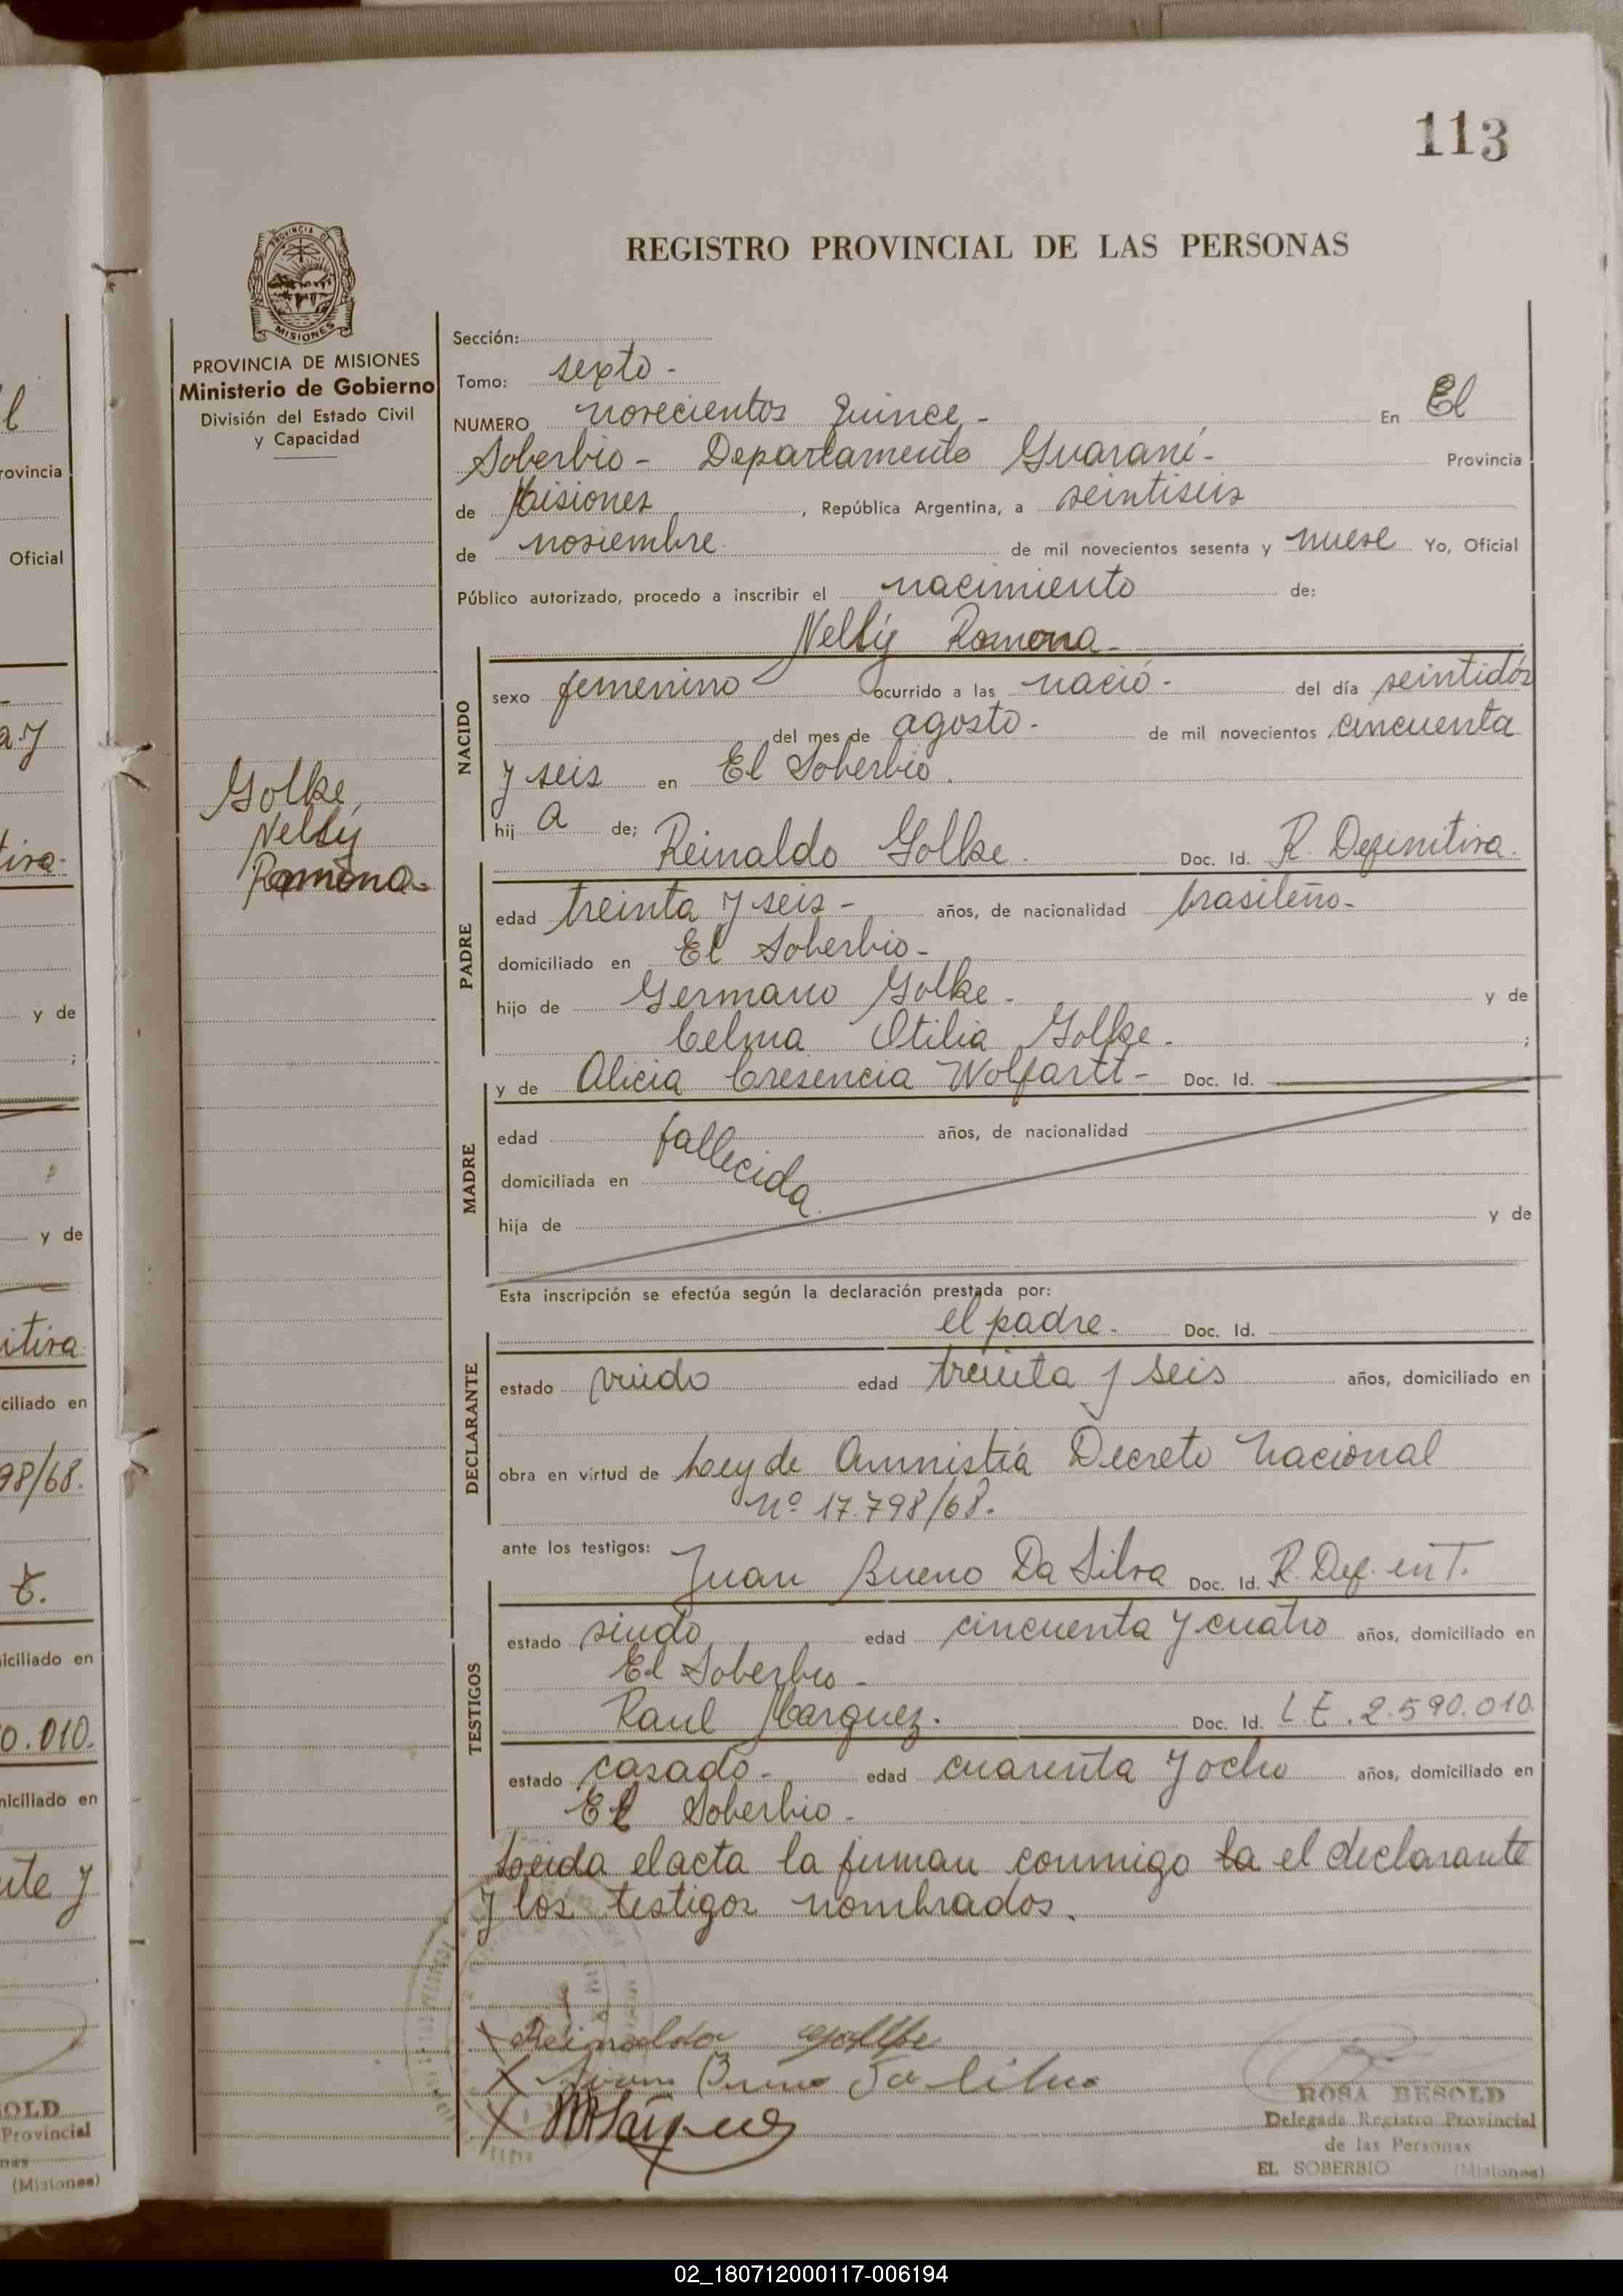 113
REGISTRO PROVINCIAL DE LAS PERSONAS
PROVINCIA DE
MISIONES
PROVINCIA DE MISIONES
Ministerio de Gobierno
División del Estado Civil
y Capacidad
Sección:
Tomo: sexto -
NUMERO novecientos quince - En El
Soberbio - Departamento Guaraní - Provincia
de Misiones, República Argentina, a veintiseis
de noviembre de mil novecientos sesenta y nueve Yo, Oficial
Público autorizado, procedo a inscribir el nacimiento de:
Nelly Ramona -
NACIDO
sexo femenino ocurrido a las nació - del día veintidós
del mes de agosto - de mil novecientos cincuenta
y seis en El Soberbio.
hij a de; Reinaldo Golke. Doc. Id. R. Definitiva.
Golke,
Nelly
Ramona -
PADRE
edad treinta y seis - años, de nacionalidad brasileño -
domiciliado en El Soberbio -
hijo de Germano Golke - y de
Celma Otilia Golke - ;
y de Alicia Cresencia Wolfartt - Doc. Id.
MADRE
edad fallecida años, de nacionalidad
domiciliada en
hija de y de
Esta inscripción se efectúa según la declaración prestada por:
el padre - Doc. Id.
DECLARANTE
estado viudo edad treinta y seis años, domiciliado en
obra en virtud de Ley de Amnistía Decreto Nacional
Nº 17.798/68.
ante los testigos:
Juan Bueno Da Silva Doc. Id. R. Def. en T.
TESTIGOS
estado viudo edad cincuenta y cuatro años, domiciliado en
El Soberbio -
Raul Marquez. Doc. Id. L.E. 2.590.010.
estado casado - edad cuarenta y ocho años, domiciliado en
El Soberbio -
Leida el acta la firman conmigo la el declarante
y los testigos nombrados.
X Reinaldo Golke
X Juan Bueno Da Silva
X Márquez
ROSA BESOLD
Delegada Registro Provincial
de las Personas
EL SOBERBIO (Misiones)
l
rovincia
Oficial
a y
tiva.
y de
;
y de
itiva.
ciliado en
98/68.
t.
iciliado en
0.010.
niciliado en
nte y
OLD
Provincial
nas
(Misiones)
02_180712000117-006194